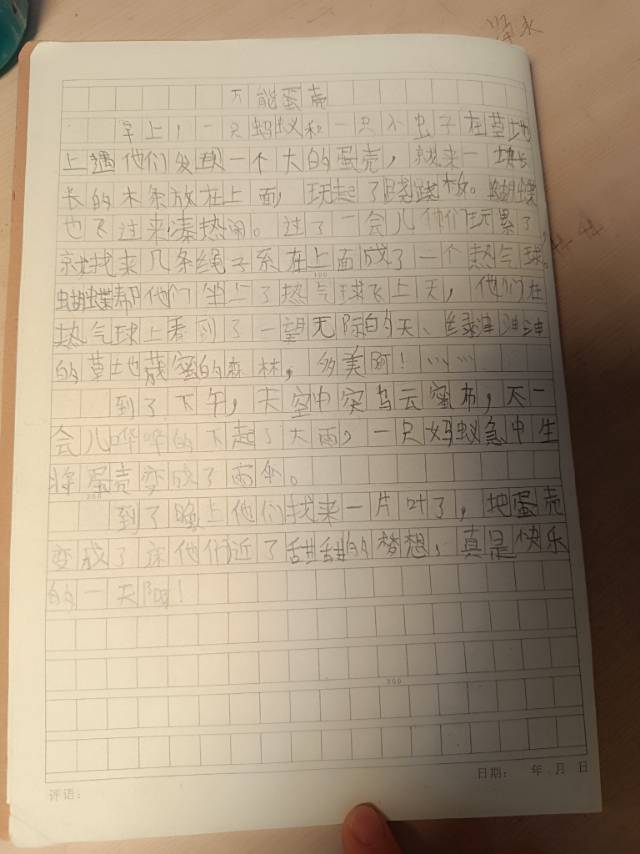 万能蛋壳
早上，一只蚂蚁和一只小虫子在草地
上遇他们发现一个大的蛋壳，就来一块长
长的木条放在上面，玩起了跷跷板。蝴蝶
也飞过来凑热闹。过了一会儿他们玩累了，
就找来几条绳子系在上面成了一个热气球。
蝴蝶帮他们坐上了热气球飞上天，他们在
热气球上看到了一望无际的天、绿油油
的草地茂密的森林，多美阿！……
到了下午，天空中突乌云蜜布，不一
会儿哗哗的下起了大雨，一只蚂蚁急中生
将蛋壳变成了雨伞。
到了晚上他们找来一片叶了，地蛋壳
变成了床他们近了甜甜的梦想，真是快乐
的一天阿！
评语：
日期： 年 月 日